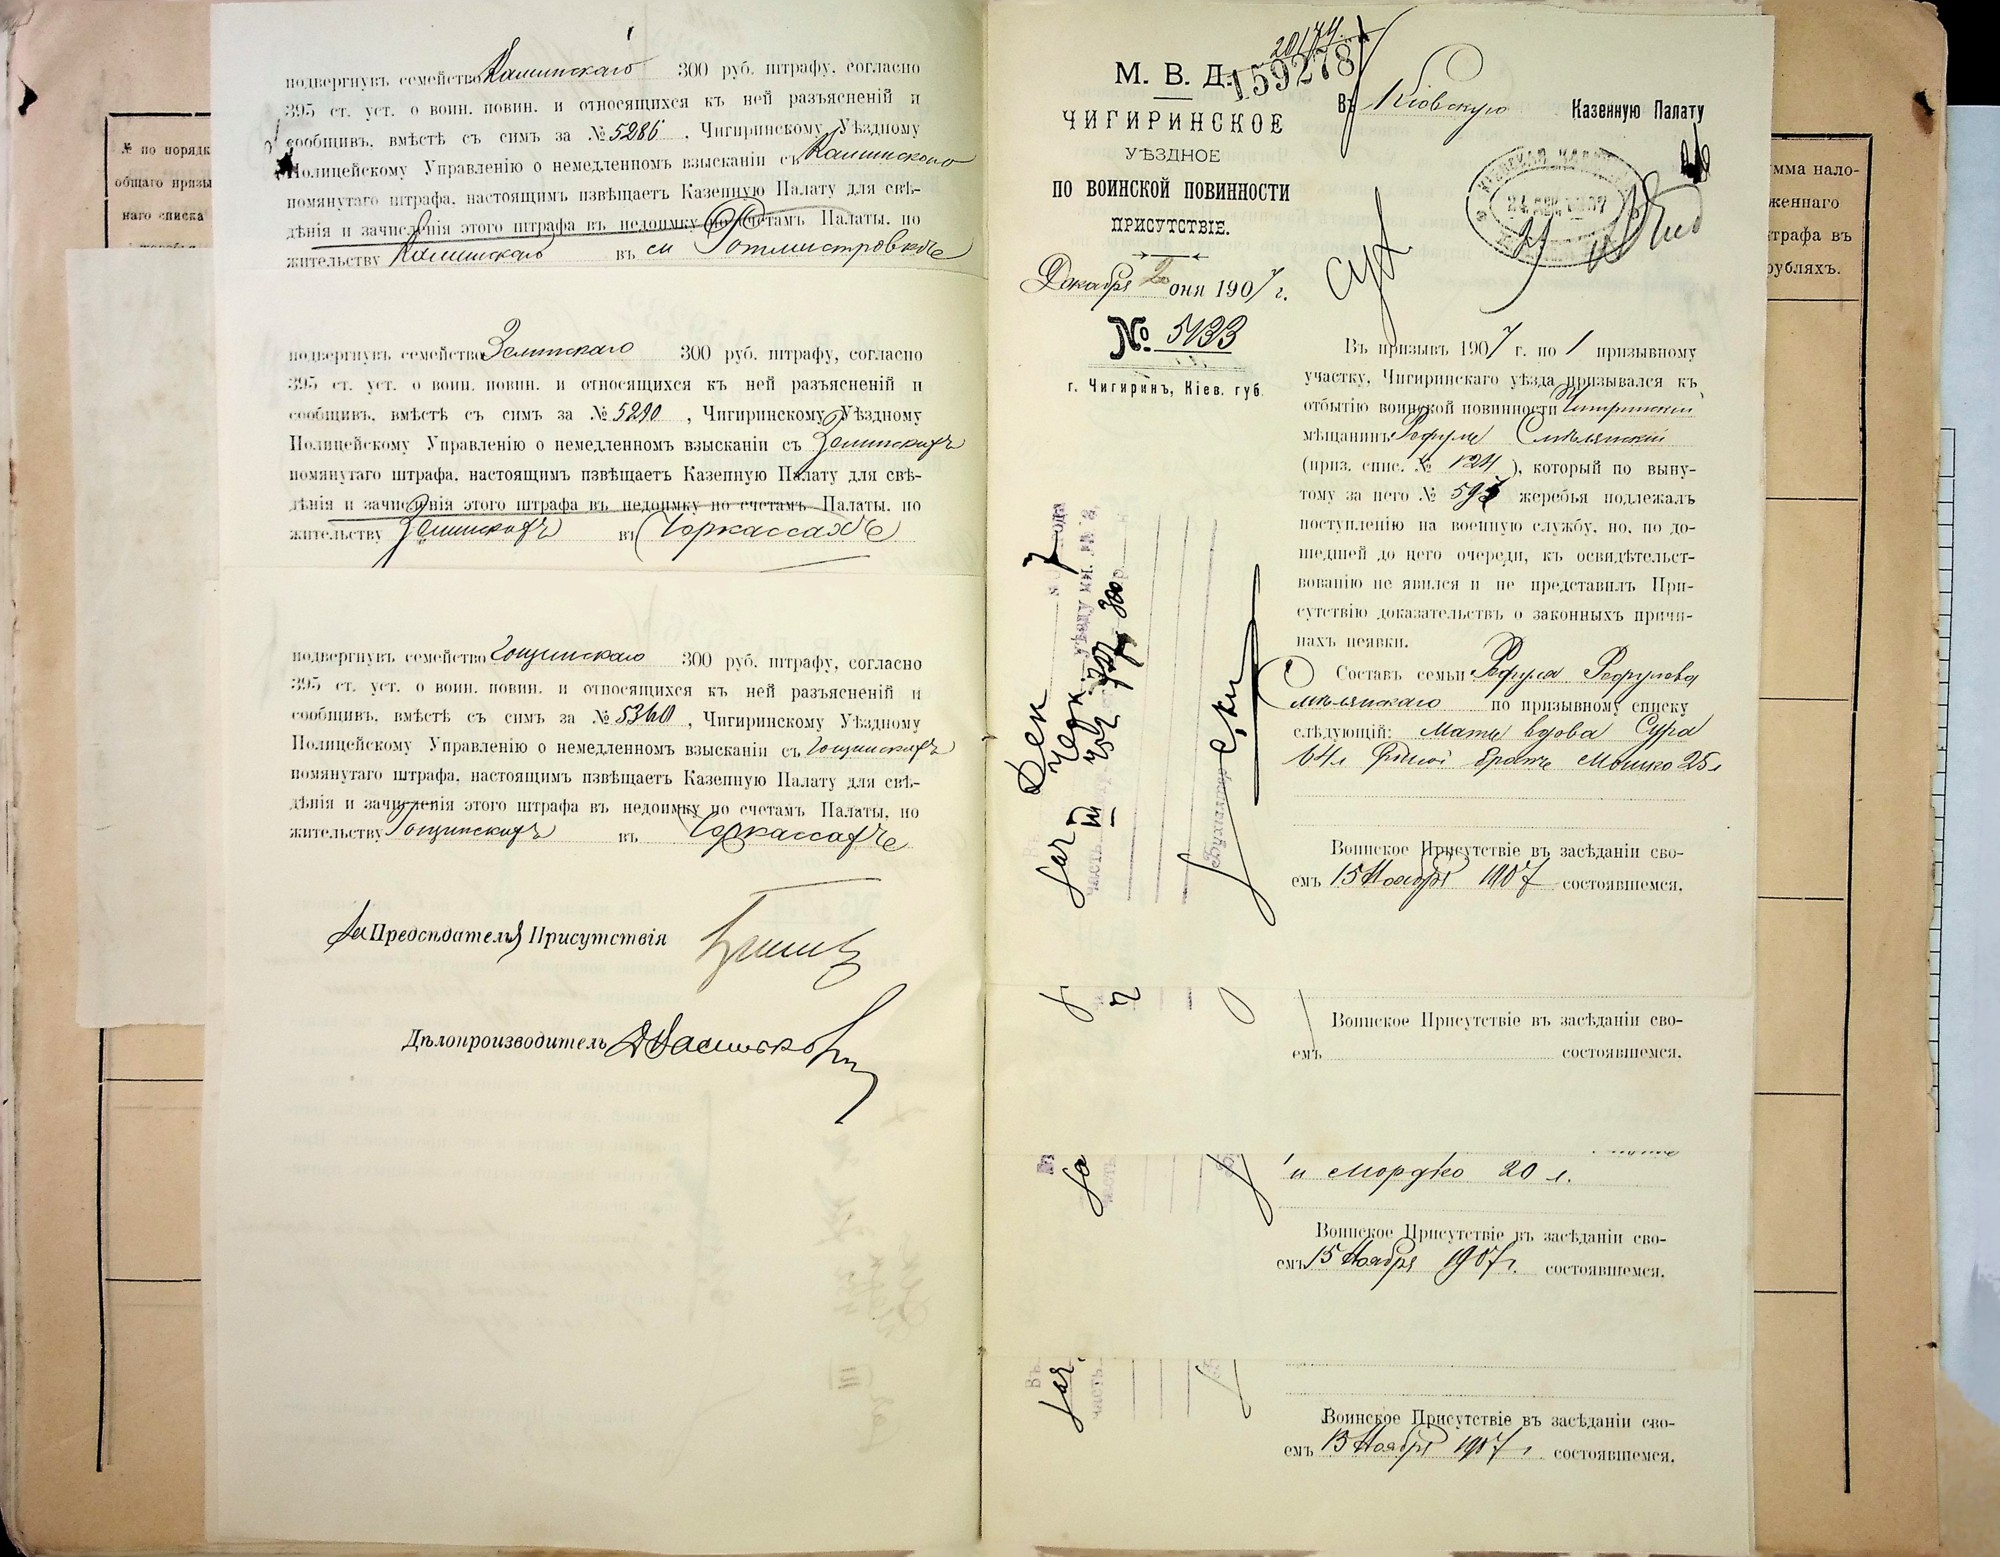 подвергнувъ семейство Калинскаго 300 руб. штрафу, согласно
395 ст. уст. о воин. повин. и относящихся къ ней разъясненій и
сообщивъ, вмѣстѣ съ симъ за № 5286, Чигиринскому Уѣздному
Полицейскому Управленію о немедленномъ взысканіи съ Калинского
помянутаго штрафа, настоящимъ извѣщаетъ Казенную Палату для свѣ-
дѣнія и зачисленія этого штрафа въ недоимку по счетамъ Палаты, по
жительству въ м Ротмистровкѣ
подвергнувъ семейство Зелинскаго 300 руб. штрафу, согласно
395 ст. уст. о воин. повин. и относящихся къ ней разъясненій и
сообщивъ, вмѣстѣ съ симъ за № 5290, Чигиринскому Уѣздному
Полицейскому Управленію о немедленномъ взысканіи съ Зелинскихъ
помянутаго штрафа, настоящимъ извѣщаетъ Казенную Палату для свѣ-
дѣнія и зачисленія этого штрафа въ недоимку по счетамъ Палаты, по
жительству Зелинскихъ въ Черкассахъ
подвергнувъ семейство Гощинскаго 300 руб. штрафу, согласно
395 ст. уст. о воин. повин. и относящихся къ ней разъясненій и
сообщивъ, вмѣстѣ съ симъ за № 5360, Чигиринскому Уѣздному
Полицейскому Управленію о немедленномъ взысканіи съ Гощинскихъ
помянутаго штрафа, настоящимъ извѣщаетъ Казенную Палату для свѣ-
дѣнія и зачисленія этого штрафа въ недоимку по счетамъ Палаты, по
жительству Гощинскихъ въ Черкассахъ
За Предсѣдателя Присутствія
Дѣлопроизводитель
№ по порядк
общаго призы
наго списка
20174
159278
М. В. Д.
ЧИГИРИНСКОЕ
УѢЗДНОЕ
ПО ВОИНСКОЙ ПОВИННОСТИ
ПРИСУТСТВІЕ.
Декабря 2 дня 1907 г.
№ 5133
г. Чигиринъ, Кіев. губ.
Въ Кіовскую Казенную Палату
Въ призывъ 1907 г. по 1 призывному
участку, Чигиринскаго уѣзда призывался къ
отбытію воинской повинности Чигиринскій
мѣщанинъ Рефулъ Смѣлянскій
(приз. спис. № 124), который по выну-
тому за него № 595 жеребья подлежалъ
поступленію на военную службу, но, по до-
шедшей до него очереди, къ освидѣтельст-
вованію не явился и не представилъ При-
сутствію доказательствъ о законныхъ причи-
нахъ неявки.
Составъ семьи Рефула Рефулова
Смѣлянскаго по призывному списку
слѣдующій: Мать вдова Сура
64 л братъ Мошко 25 л
Воинское Присутствіе въ засѣданіи сво-
емъ 15 Ноября 1907 состоявшемся,
Воинское Присутствіе въ засѣданіи сво-
емъ состоявшемся,
и Мордко 20 л.
Воинское Присутствіе въ засѣданіи сво-
емъ 15 Ноября 1907 г. состоявшемся,
Воинское Присутствіе въ засѣданіи сво-
емъ 15 Ноября 1907 г. состоявшемся,
Бухгалтеръ
мма нало-
женнаго
трафа въ
рубляхъ.